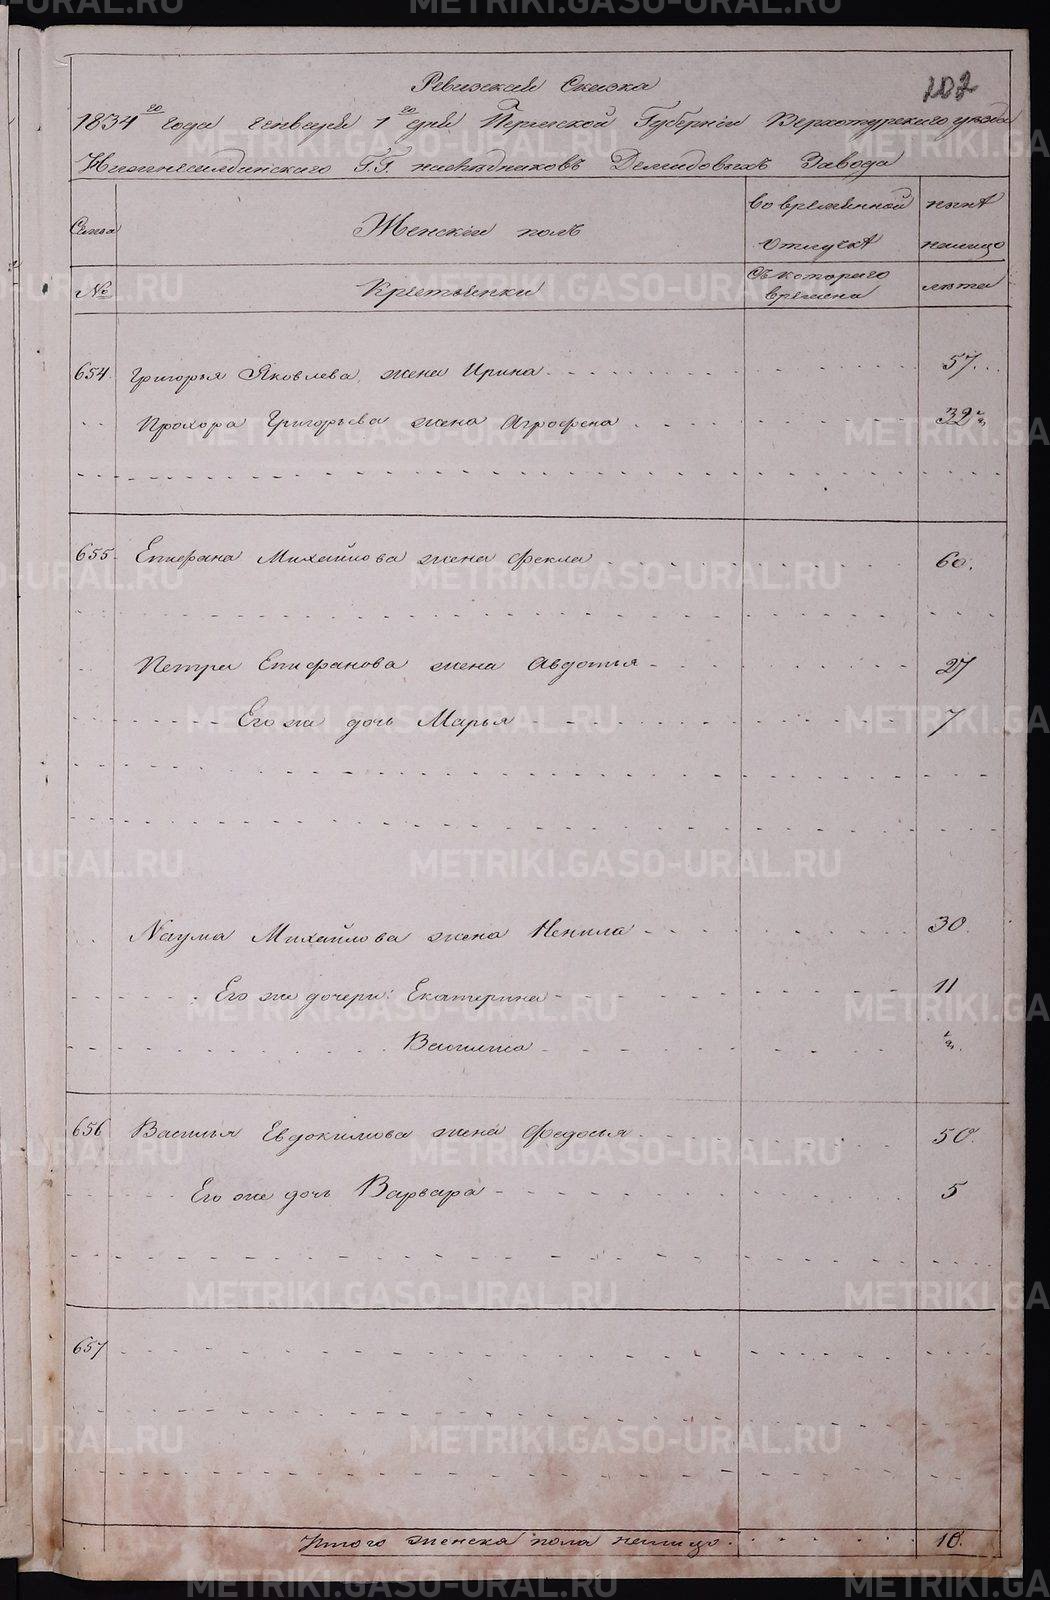 202
Ревизская Сказка
1834го года генваря 1го дня Пермской Губернiи Верхотурскаго уезда
Нижнесалдинскаго Г.Г. наследниковъ Демидовыхъ Завода
Семья
Женскiй полъ
Во временной отлучке
ныне налицо
№
Крестьянки
Съ котораго времени
лета
654. Григорья Яковлева жена Ирина 57.
Прохора Григорьева жена Агрофена 32 1/2
655. Епифана Михайлова жена Фекла 60.
Петра Епифанова жена Авдотья 27
Его же дочь Марья 7
Наума Михайлова жена Ненила 30.
Его же дочери: Екатерина 11
Василиса 1/2.
656 Василья Евдокимова жена Федосья 50.
Его же дочь Варвара 5
657
Итого женска пола налицо. 10.
METRIKI.GASO-URAL.RU